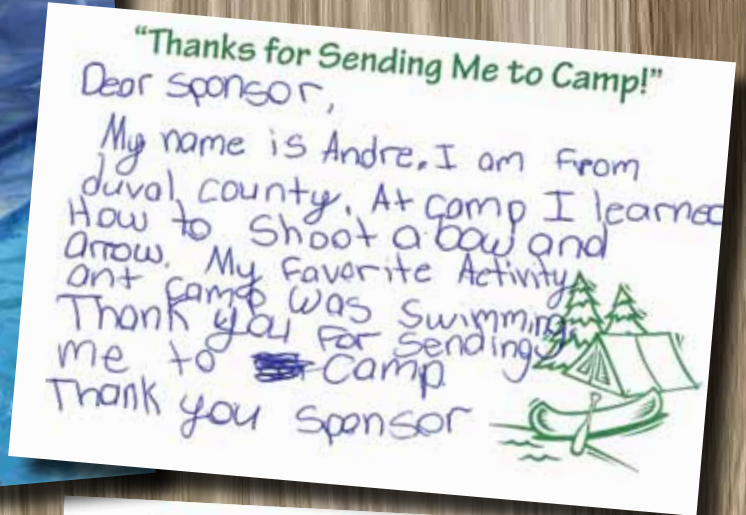 "Thanks for Sending Me to Camp!"
Dear sponsor,
My name is Andre. I am from
duval county. At camp I learned
How to Shoot a bow and
arrow. My Favorite Activity
ant camp was Swimming.
Thank you For Sending
me to Camp
Thank you sponsor